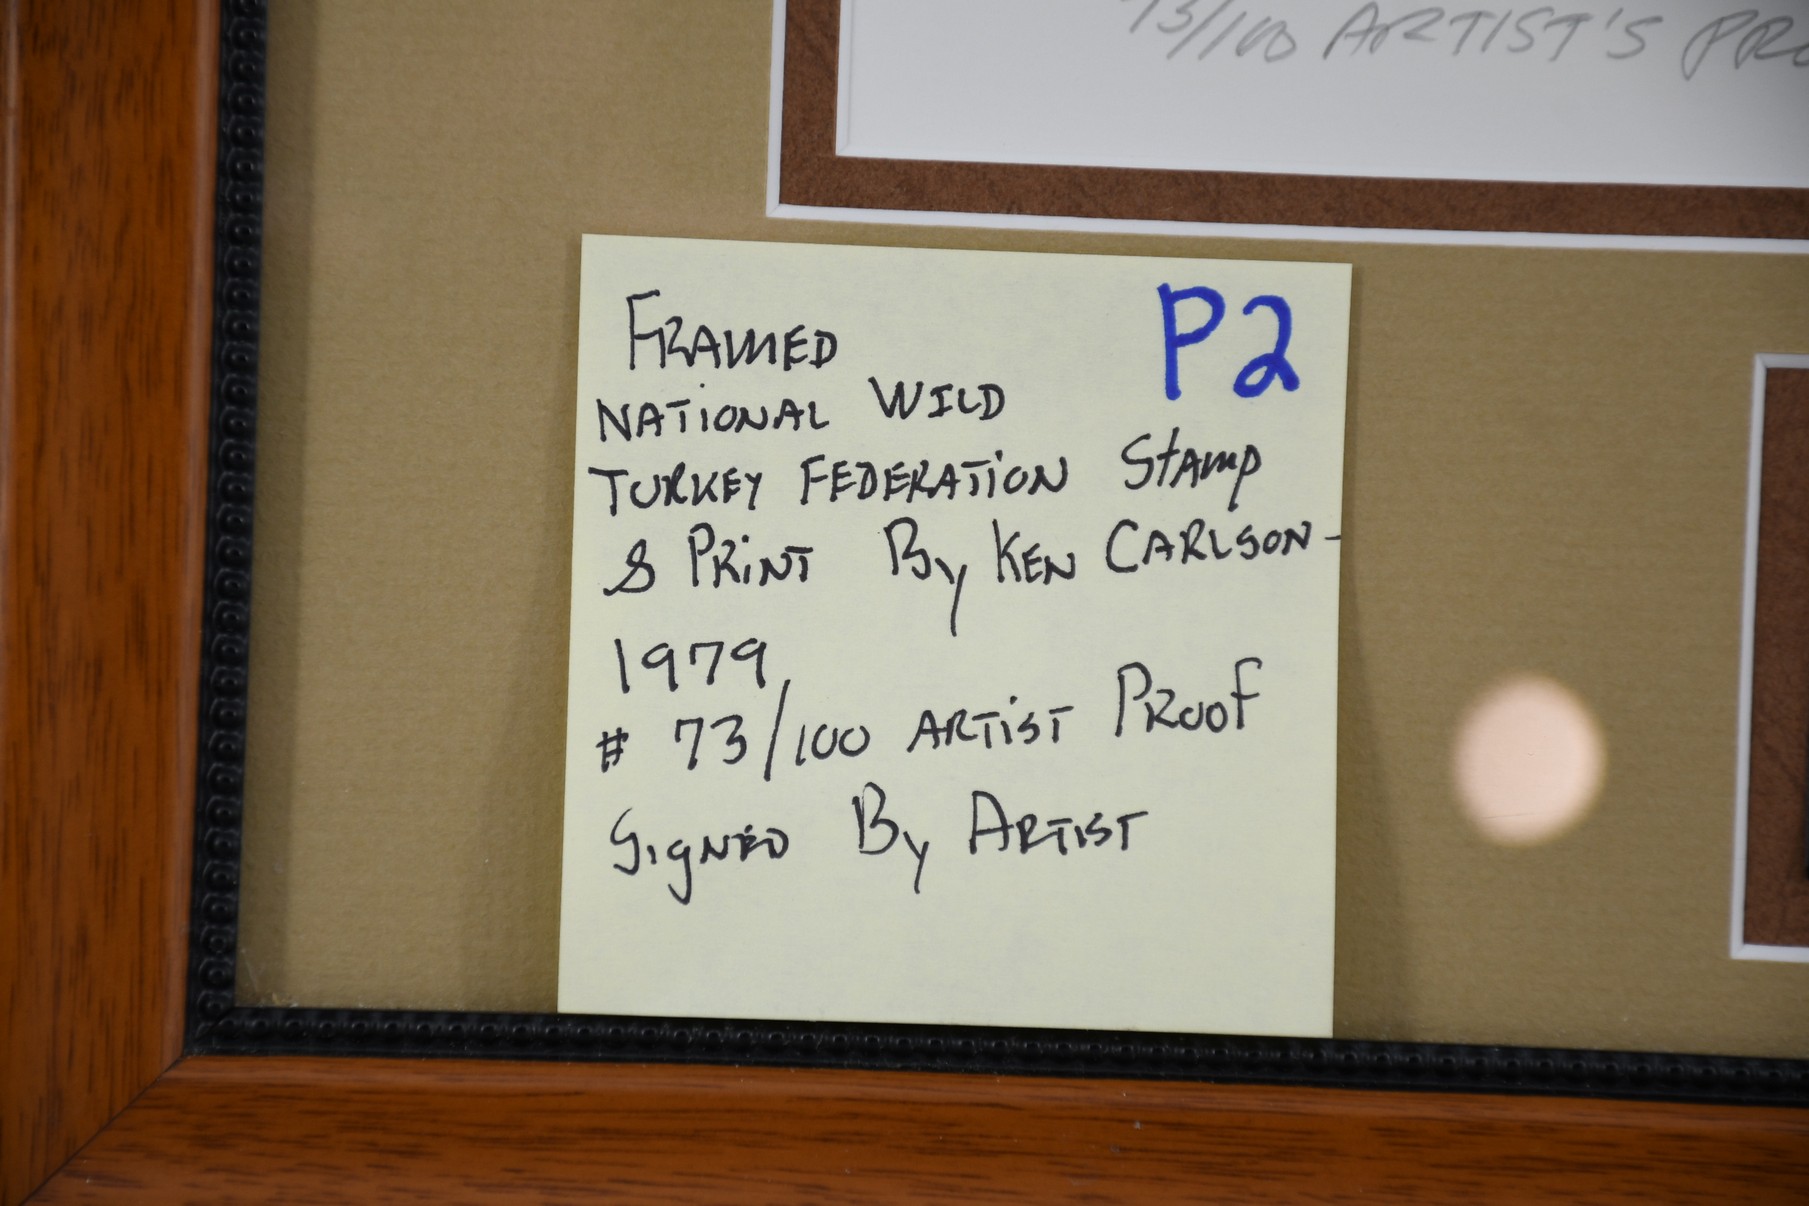 73/100 ARTIST'S PRO
FRAMED
P2
NATIONAL WILD
TURKEY FEDERATION Stamp
& PRiNT By KEN CARLSON-
1979
# 73/100 ARTiST PROOF
SigNED By ARTIST